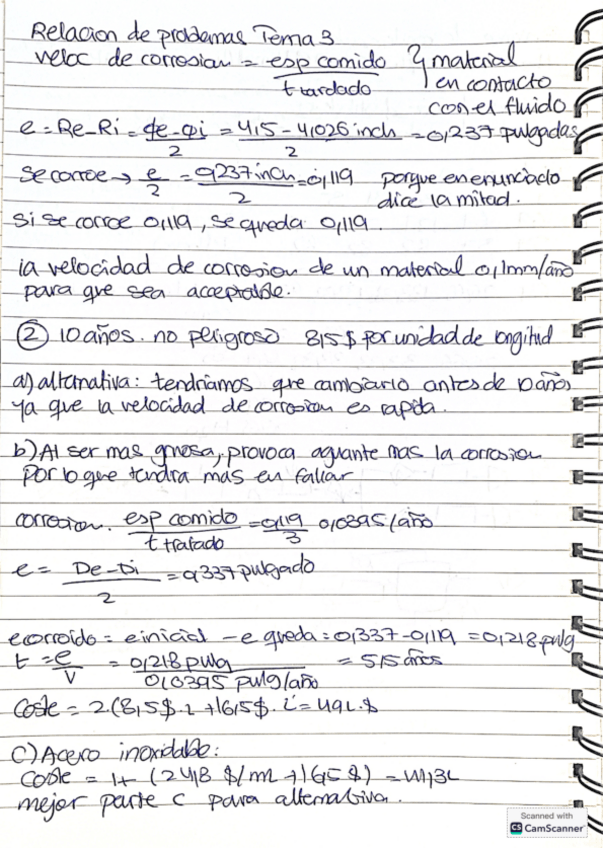 Relacion de problemas Tema 3
veloc de corrosion = esp comido / t tardado } material en contacto con el fluido
e = Re-Ri = φe-φi / 2 = 4,5 - 4,026 inch / 2 = 0,237 pulgadas
se corroe → e/2 = 0,237 inch / 2 = 0,119 porque en enunciado dice la mitad.
si se corroe 0,119, se queda 0,119.
la velocidad de corrosion de un material 0,1mm/año
para que sea acceptable.
② 10 años. no peligroso 8,5 $ por unidad de longitud
a) alternativa: tendriamos que cambiarlo antes de 10 años
ya que la velocidad de corrosion es rapida.
b) Al ser mas gruesa, provoca aguante mas la corrosion
por lo que tendra mas en fallar
corrosion. esp comido / t tratado = 0,119 / 3 0,0395/año
e = De-Di / 2 = 0,337 pulgado
ecorroido = e inicial - e queda = 0,337-0,119 = 0,218 pulg
t = e/v = 0,218 pulg / 0,0395 pulg/año = 5,5 años
Coste = 2.(8,5$.L +16,5$.
c) Acero inoxidable:
Coste =
mejor parte c para alternativa.
Scanned with
CS CamScanner